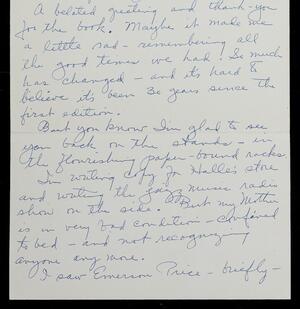 A belated greeting and thank-you
for the book. Maybe it made me
a little sad - remembering all
the good times we had. So much
has changed - and it's hard to
believe it's been 30 years since the
first edition.
But you know I'm glad to see
you back on the stands - in
the flourishing paper-bound racks.
I'm writing copy for Halle's store
and writing the jazz music radio
show on the side. But my Mother
is in very bad condition - confined
to bed - and not recognizing
anyone any more.
I saw Emerson Price - briefly -